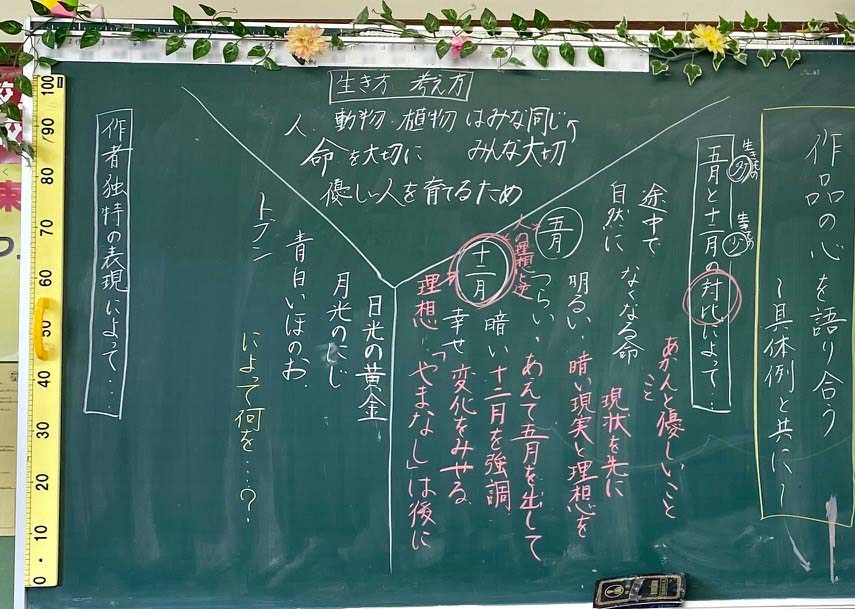 作品の心を語り合う
〜具体例と共に〜
五月と十二月の対比によって…
生き方 考え方
人、動物、植物はみな同じ
命を大切に みんな大切
優しい人を育てるため
あかんことと優しいこと
途中で
自然になくなる命
現状を先に
五月
明るい・暗い現実と理想を
つらい・あえて五月を出して
人の理想と逆
十二月
暗い 十二月を強調
幸せ 変化をみせる
理想…「やまなし」は後に
日光の黄金
月光のにじ
青白いほのお
トブン
によって何を…?
作者独特の表現によって…
100
90
80
70
60
50
40
30
20
10
0